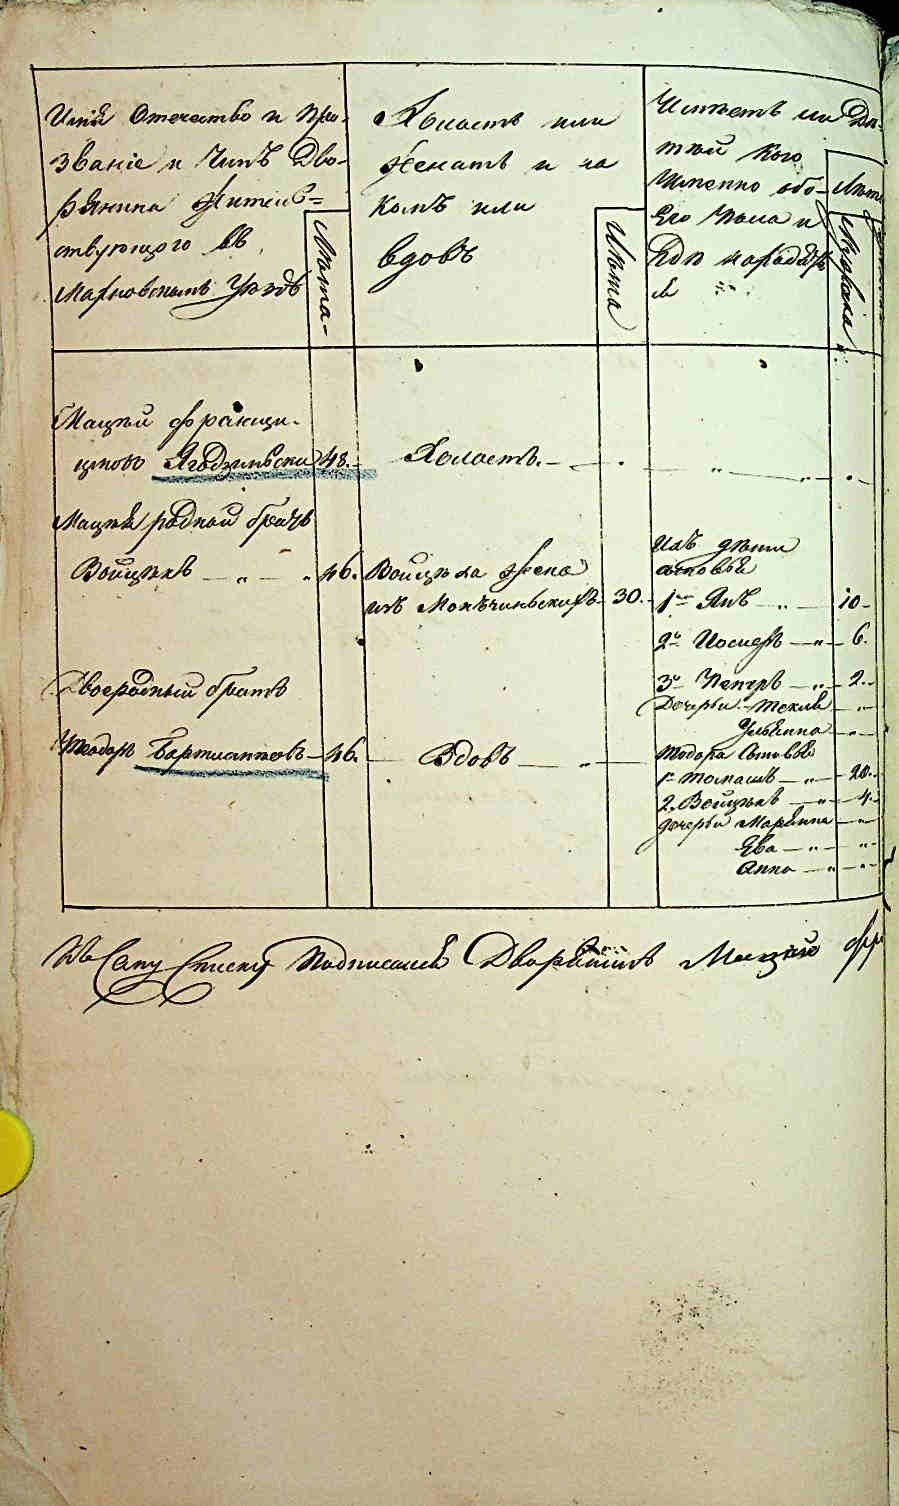 Имя Отечество и Про-
званіе и Чинъ Дво-
рянина Жительс=
ствующого въ
Махновскомъ Уѣздѣ
Лѣта-
Холастъ или
Женатъ и на
комъ или
вдовъ
Лѣта
Имѣетъ ли Дѣ-
тѣй кого
Именно обо-
Его пола и
Лѣта
Мужска
Мацѣй Франци-
шковъ Ягодзиньски 48.
Холастъ.
Мацѣя родной братъ
Войцѣхъ 46.
Войцѣха Жена
изъ Монѣчиньскихъ 30.
Ихъ дѣти
сыновья
1й Янъ 10
2й Иосифъ 6.
3й Петръ 2.
Дочерьи Текля
Ульянна
Двоеродный братъ
Теодоръ Бартламовъ 46.
Вдовъ
Тодора Сыновья
1й Томашъ 20.
2. Войцѣхъ 4.
дочерьи Марьянна
Ева
Анна
Къ Сему Списку Подписался Дворянинъ Мацѣй